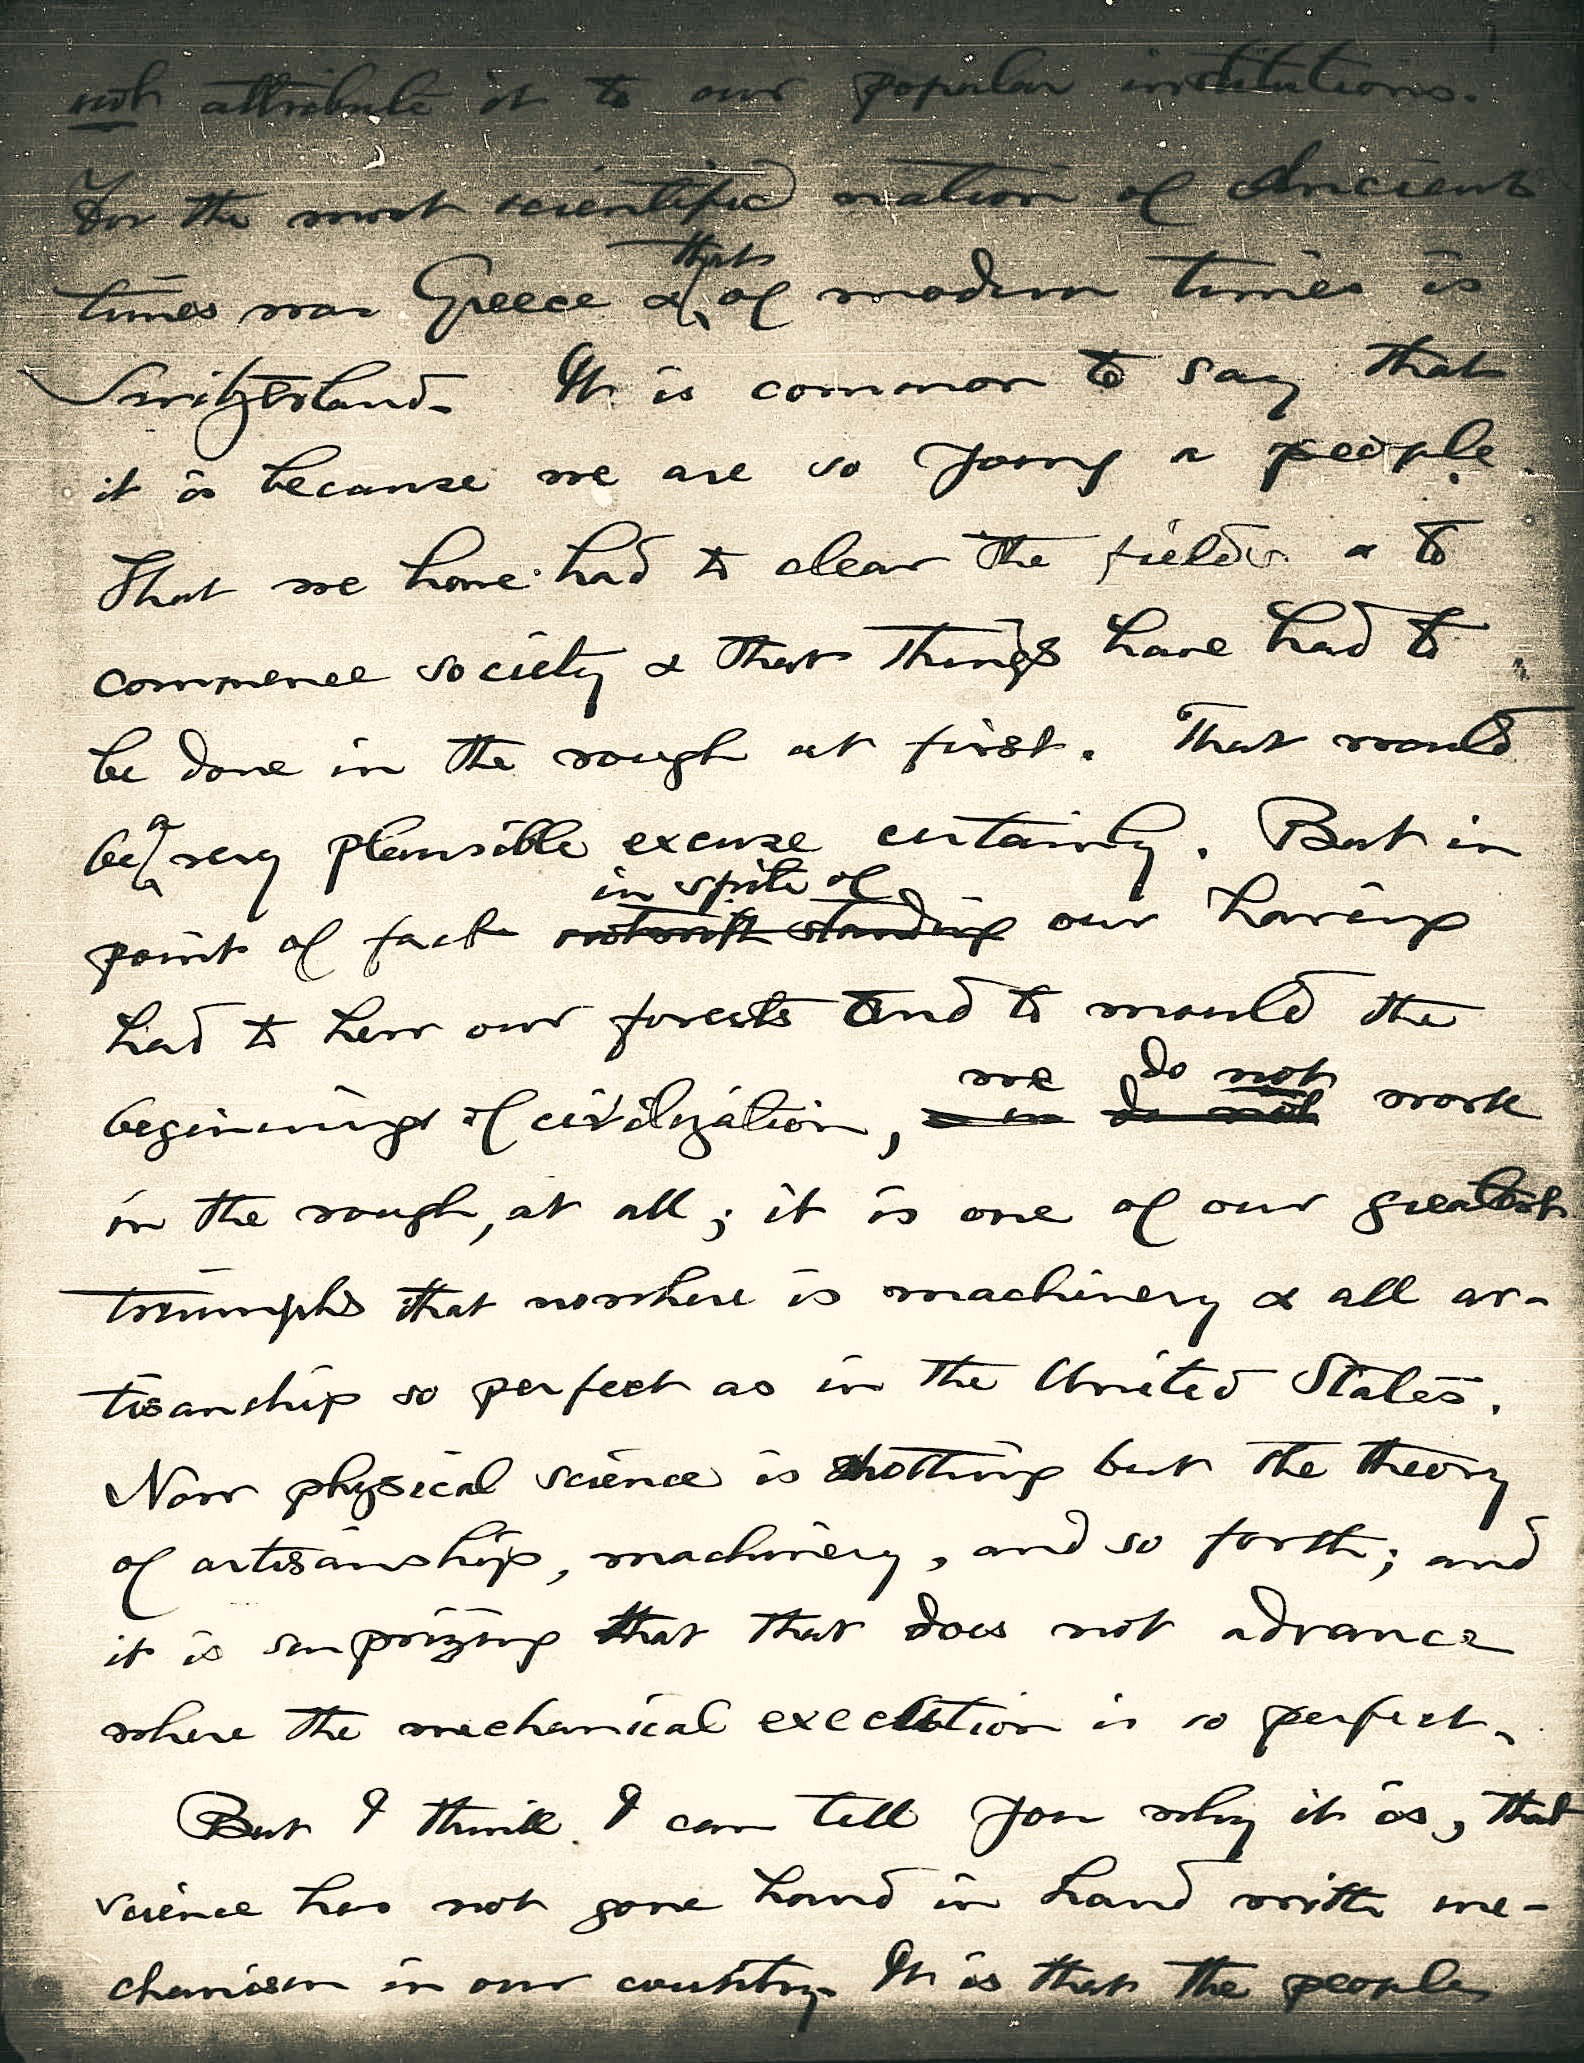 not attribute it to our popular institutions.
For the most scientific nation of Ancient
times was Greece & that of modern times is
Switzerland. It is common to say that
it is because we are so young a people.
That we have had to clear the fields & to
commence society & that things have had to
be done in the rough at first. That would
be a very plausible excuse certainly. But in
point of fact in spite of notwithstanding our having
had to hew our forests and to mould the
beginnings of civilization, we do not do not work
in the rough, at all; it is one of our greatest
triumphs that nowhere is machinery & all ar-
tisanship so perfect as in the United States.
Now physical science is nothing but the theory
of artisanship, machinery, and so forth; and
it is surprizing that that does not advance
where the mechanical execution is so perfect.
But I think I can tell you why it is, that
science has not gone hand in hand with me-
chanism in our country. It is that the people